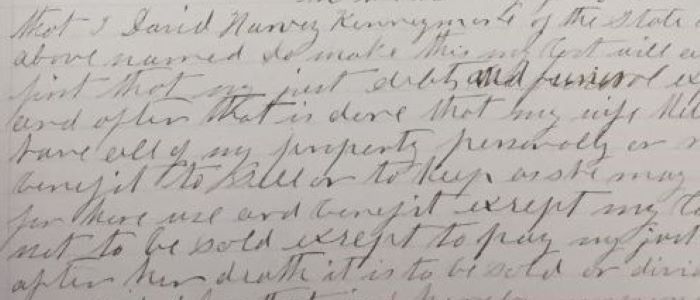 that I David Harvey Kenneymore of the State
above named do make this my last will a
first that my just debts and funirol e
and after that is done that my wife
have all of my property personaly or r
benefit to sell or to keep as she may
for here use and benefit exsept my
not to be sold exsept to pay my just
after her death it is to be sold or divi